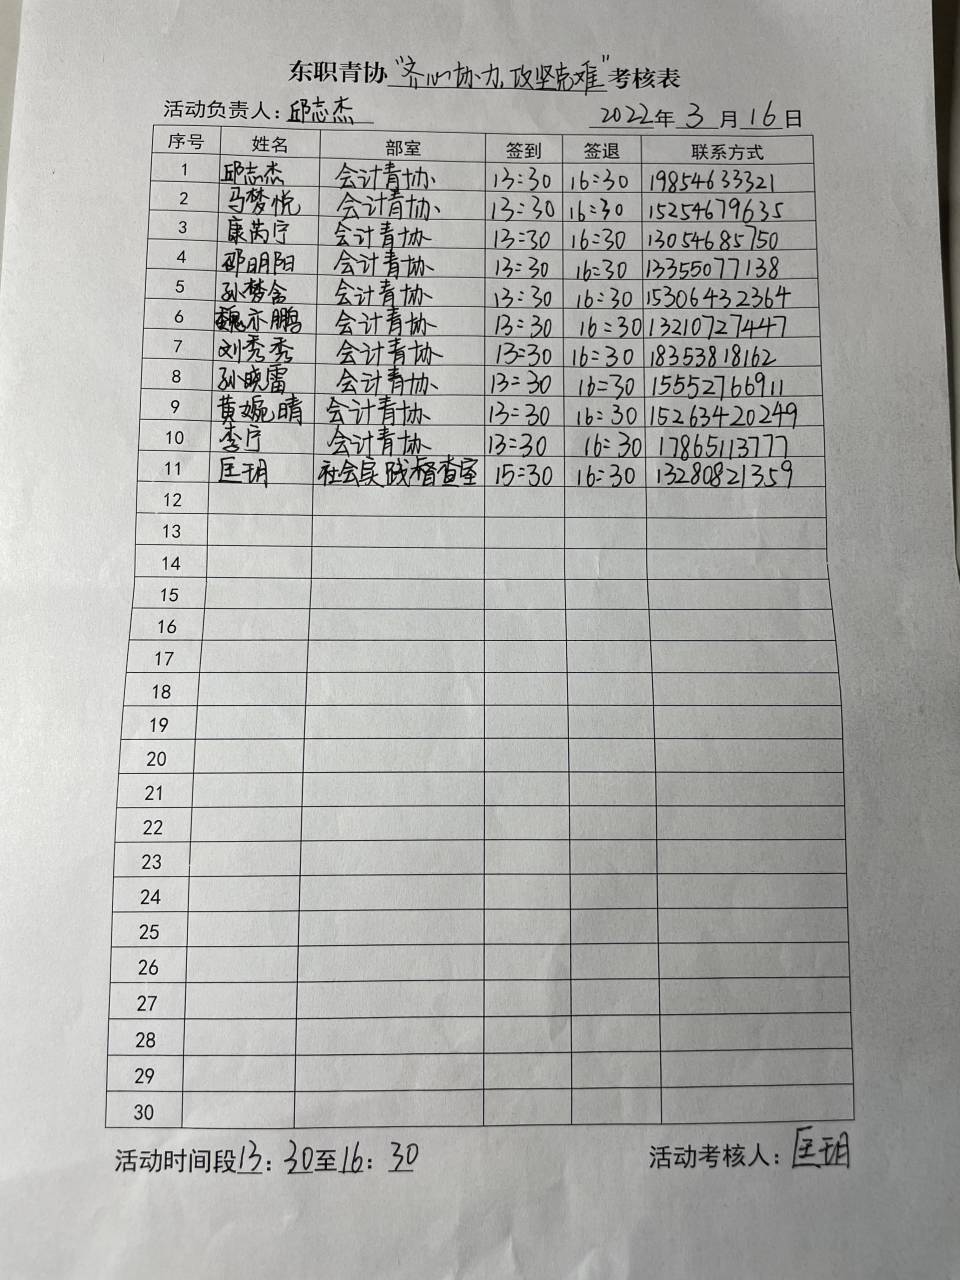 东职青协"齐心协力,攻坚克难"考核表
活动负责人:邱志杰 2022年3月16日
序号 姓名 部室 签到 签退 联系方式
1 邱志杰 会计青协 13:30 16:30 19854633321
2 马梦悦 会计青协 13:30 16:30 15254679635
3 康芮宁 会计青协 13:30 16:30 13054685750
4 邵明阳 会计青协 13:30 16:30 13355077138
5 孙梦含 会计青协 13:30 16:30 15306432364
6 魏亦鹏 会计青协 13:30 16:30 13210727447
7 刘秀秀 会计青协 13:30 16:30 18353818162
8 孙晓雷 会计青协 13:30 16:30 15552766911
9 黄婉晴 会计青协 13:30 16:30 15263420249
10 李宁 会计青协 13:30 16:30 17865113777
11 匡玥 社会实践督查室 15:30 16:30 13280821359
12
13
14
15
16
17
18
19
20
21
22
23
24
25
26
27
28
29
30
活动时间段13:30至16:30 活动考核人:匡玥